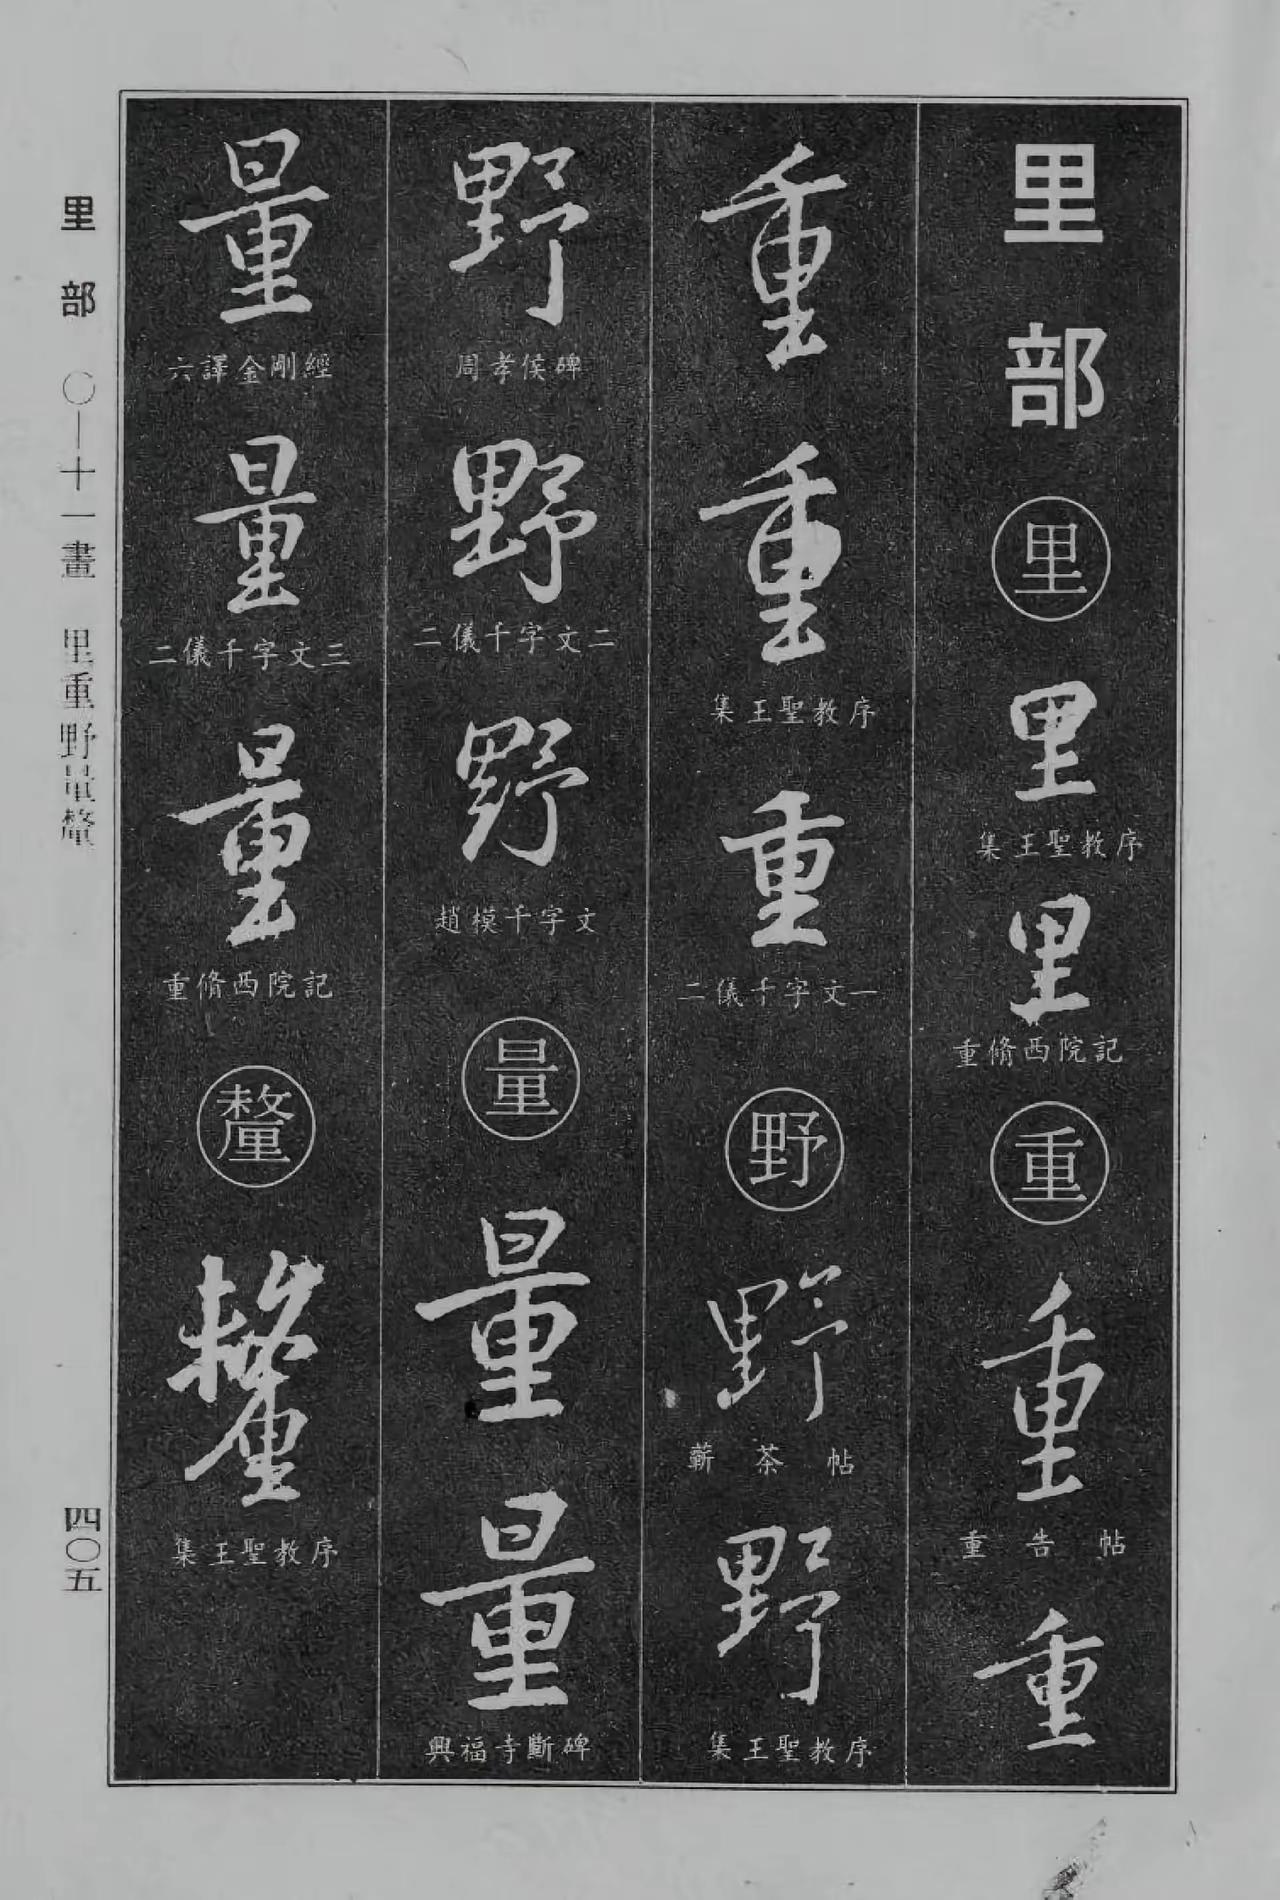 里部
里
里
集王聖教序
里
重脩西院記
重
重
重告帖
重
重
重
集王聖教序
重
二儀千字文一
野
野
蘄茶帖
野
集王聖教序
野
周孝侯碑
野
二儀千字文二
野
趙模千字文
量
量
量
興福寺斷碑
量
六譯金剛經
量
二儀千字文三
量
重脩西院記
釐
釐
集王聖教序
里部 〇—十一畫 里重野量釐
四〇五